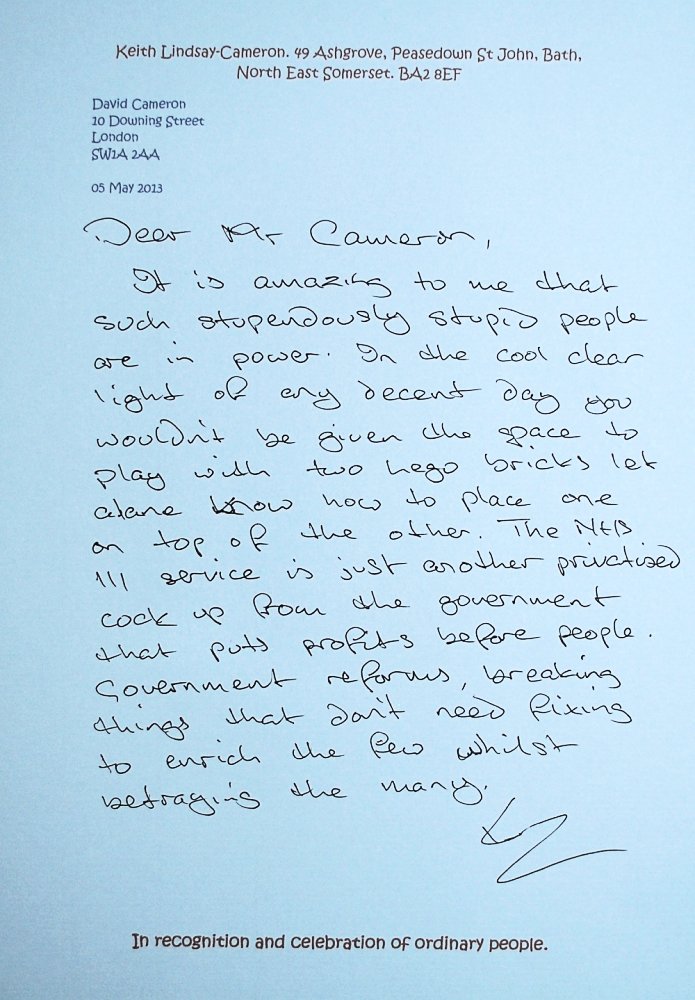 Keith Lindsay-Cameron. 49 Ashgrove, Peasedown St John, Bath,
North East Somerset. BA2 8EF
David Cameron
10 Downing Street
London
SW1A 2AA
05 May 2013
Dear Mr Cameron,
It is amazing to me that
such stupendously stupid people
are in power. In the cool clear
light of any decent day you
wouldn't be given the space to
play with two Lego bricks let
alone know how to place one
on top of the other. The NHS
111 service is just another privatised
cock up from the government
that puts profits before people.
Government reforms, breaking
things that don't need fixing
to enrich the few whilst
betraying the many.
In recognition and celebration of ordinary people.